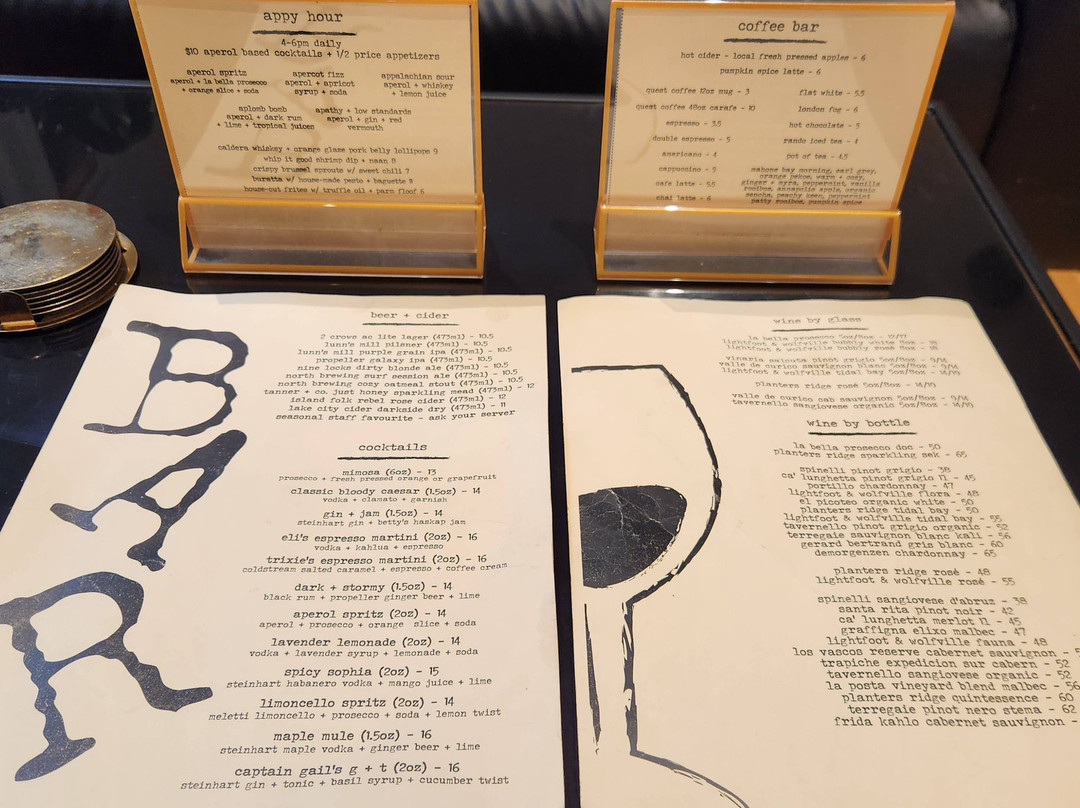 appy hour
4-6pm daily
$10 aperol based cocktails + 1/2 price appetizers
aperol spritz
aperol + la bella prosecco
+ orange slice + soda
apercot fizz
aperol + apricot
syrup + soda
appalachian sour
aperol + whiskey
+ lemon juice
aplomb bomb
aperol + dark rum
+ lime + tropical juices
apathy + low standards
aperol + gin + red
vermouth
caldera whiskey + orange glaze pork belly lollipops 9
whip it good shrimp dip + naan 8
crispy brussel sprouts w/ sweet chili 7
buratta w/ house-made pesto + baguette 8
house-cut frites w/ truffle oil + parm flouf 6
coffee bar
hot cider - local fresh pressed apples - 6
pumpkin spice latte - 6
quest coffee 12oz mug - 3
quest coffee 48oz carafe - 10
espresso - 3.5
double espresso - 5
americano - 4
cappuccino - 5
cafe latte - 5.5
chai latte - 6
flat white - 5.5
london fog - 6
hot chocolate - 5
rando iced tea - 4
pot of tea - 4.5
mahone bay morning, earl grey,
orange pekoe, warm + cozy,
ginger + zyra, peppermint, vanilla
rooibos, annapolis apple, organic
sencha, peachy keen, peppermint
patty rooibos, pumpkin spice
BAR
beer + cider
2 crows ac lite lager (473ml) - 10.5
lunn's mill pilsner (473ml) - 10.5
lunn's mill purple grain ipa (473ml) - 10.5
propeller galaxy ipa (473ml) - 10.5
nine locks dirty blonde ale (473ml) - 10.5
north brewing surf session ale (473ml) - 10.5
north brewing cozy oatmeal stout (473ml) - 10.5
tanner + co. just honey sparkling mead (473ml) - 12
island folk rebel rose cider (473ml) - 12
lake city cider darkside dry (473ml) - 11
seasonal staff favourite - ask your server
cocktails
mimosa (6oz) - 13
prosecco + fresh pressed orange or grapefruit
classic bloody caesar (1.5oz) - 14
vodka + clamato + garnish
gin + jam (1.5oz) - 14
steinhart gin + betty's haskap jam
eli's espresso martini (2oz) - 16
vodka + kahlua + espresso
trixie's espresso martini (2oz) - 16
coldstream salted caramel + espresso + coffee cream
dark + stormy (1.5oz) - 14
black rum + propeller ginger beer + lime
aperol spritz (2oz) - 14
aperol + prosecco + orange slice + soda
lavender lemonade (2oz) - 14
vodka + lavender syrup + lemonade + soda
spicy sophia (2oz) - 15
steinhart habanero vodka + mango juice + lime
limoncello spritz (2oz) - 14
meletti limoncello + prosecco + soda + lemon twist
maple mule (1.5oz) - 16
steinhart maple vodka + ginger beer + lime
captain gail's g + t (2oz) - 16
steinhart gin + tonic + basil syrup + cucumber twist
wine by glass
la bella prosecco 5oz/8oz -
lightfoot & wolfville bubbly white 8oz -
lightfoot & wolfville bubbly rosé 8oz -
vinaria calcuta pinot grigio 5oz/8oz - 9/14
valle de curico sauvignon blanc 5oz/8oz - 9/14
lightfoot & wolfville tidal bay 5oz/8oz - 14/19
planters ridge rosé 5oz/8oz - 14/19
valle de curico cab sauvignon 5oz/8oz - 9/14
tavernello sangiovese organic 5oz/8oz - 14/19
wine by bottle
la bella prosecco doc - 50
planters ridge sparkling sek - 65
spinelli pinot grigio - 38
ca' lunghetta pinot grigio 1l - 45
portillo chardonnay - 47
lightfoot & wolfville flora - 48
el picoteo organic white - 50
planters ridge tidal bay - 50
lightfoot & wolfville tidal bay - 55
tavernello pinot grigio organic - 52
terregaie sauvignon blanc kali - 56
gerard bertrand gris blanc - 60
demorgenzen chardonnay - 65
planters ridge rosé - 48
lightfoot & wolfville rosé - 55
spinelli sangiovese d'abruz - 38
santa rita pinot noir - 42
ca' lunghetta merlot 1l - 45
graffigna elixo malbec - 47
lightfoot & wolfville fauna - 48
los vascos reserve cabernet sauvignon -
trapiche expedicion sur cabern - 52
tavernello sangiovese organic - 52
la posta vineyard blend malbec - 56
planters ridge quintessence - 60
terregaie pinot nero stema - 62
frida kahlo cabernet sauvignon -